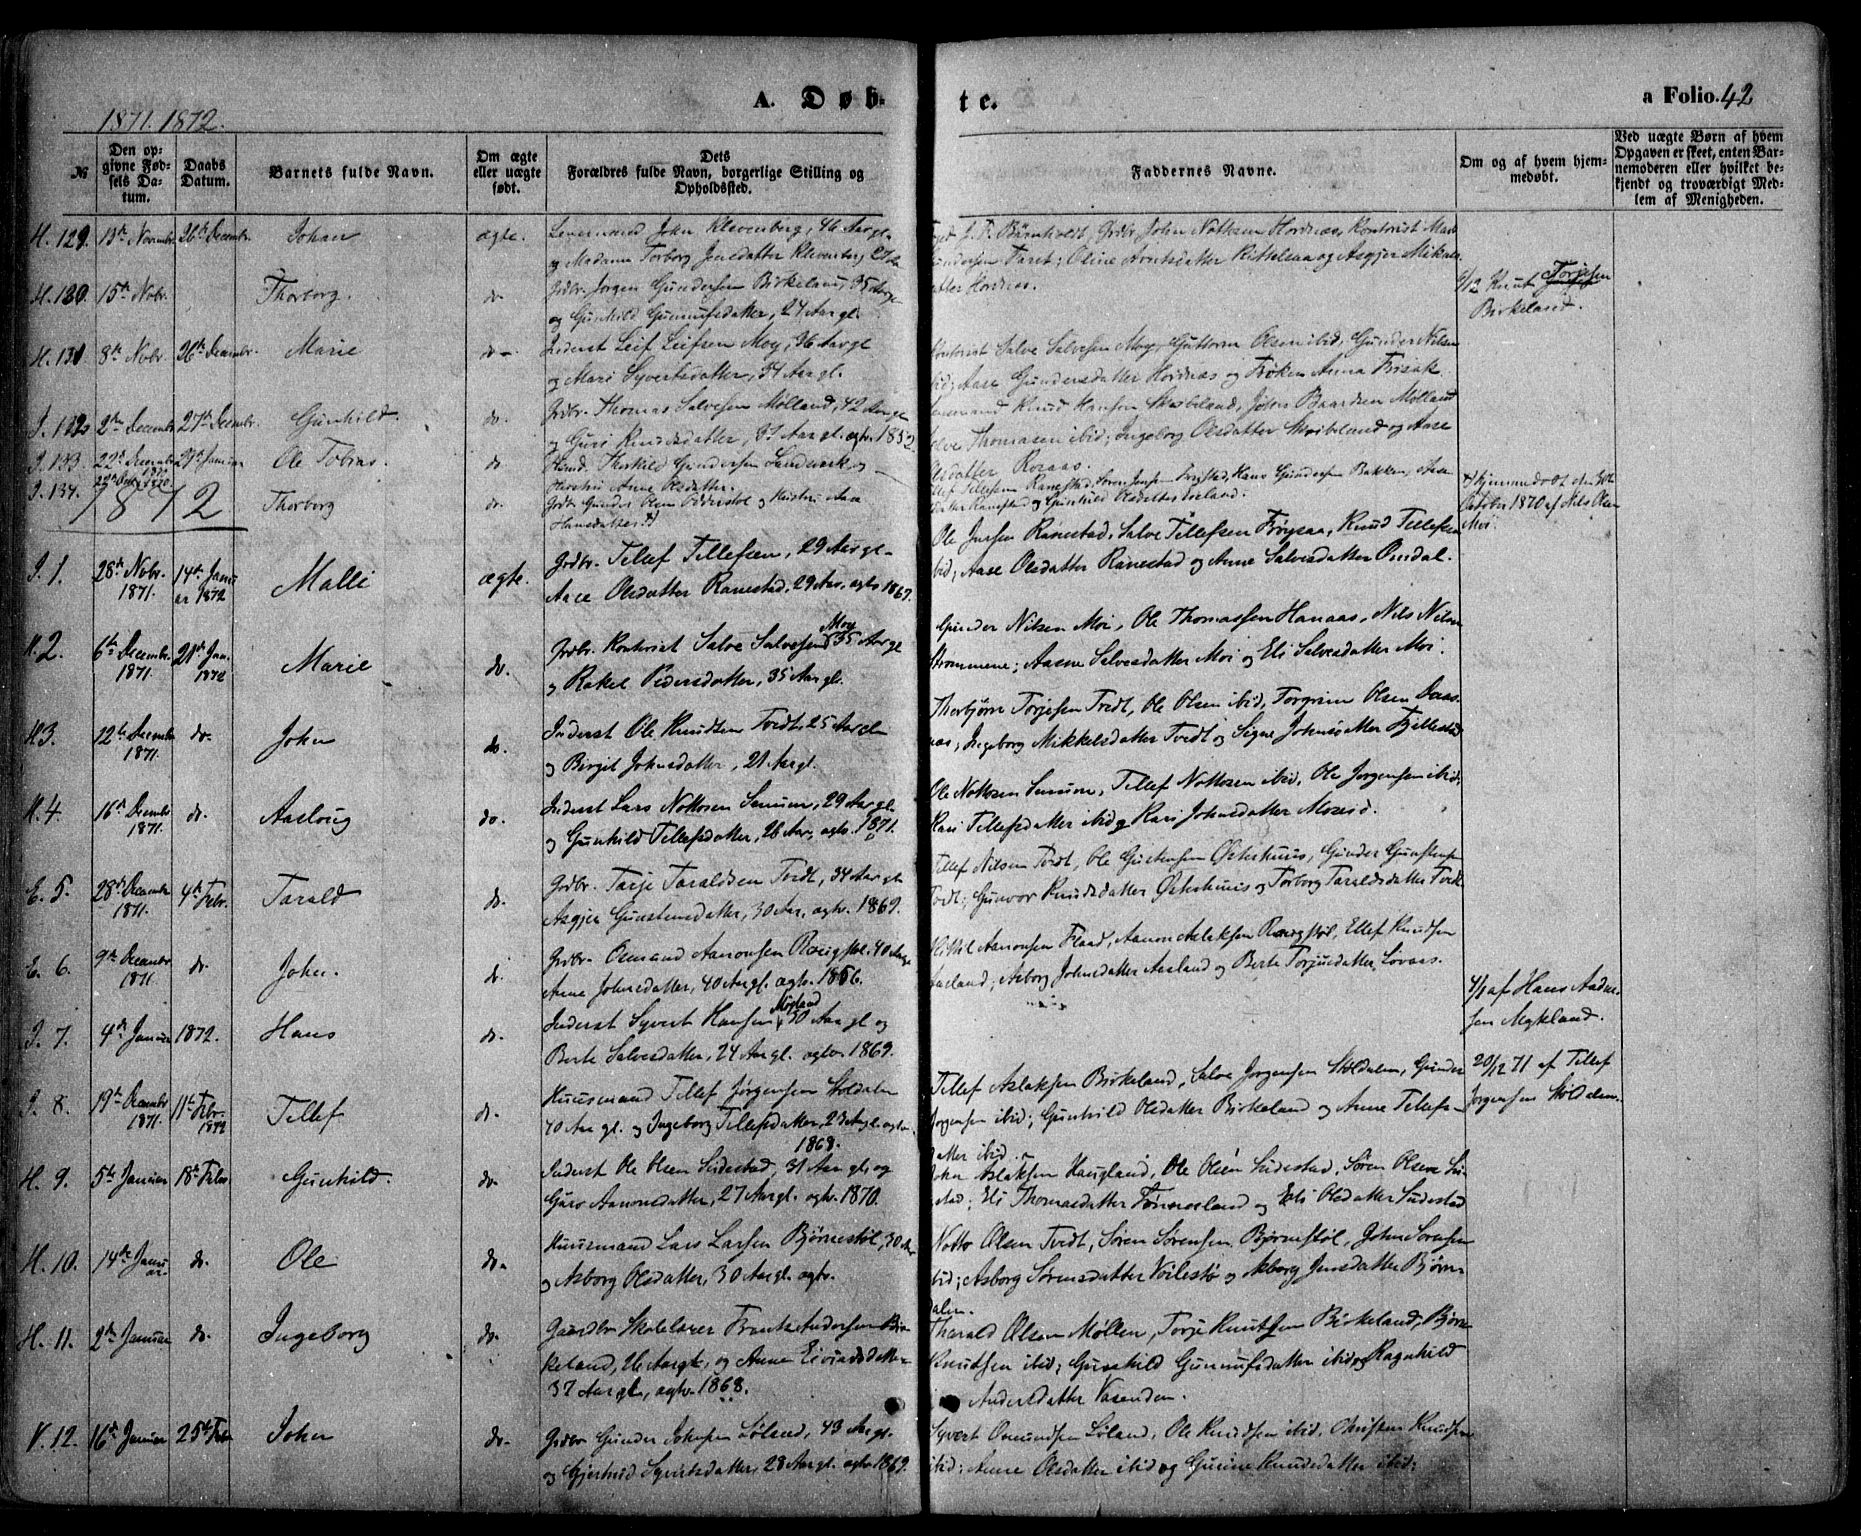 1871. 1872.
A. Døb-
te.
a Folio. 42
№
Den op-
givne Fød-
sels Da-
tum.
Daabs
Datum.
Barnets fulde Navn.
Om ægte
eller uægte
født.
Dets
Forældres fulde Navn, borgerlige Stilling og
Opholdssted.
Faddernes Navne.
Om og af hvem hjem-
medøbt.
Ved uægte Børn af hvem
Opgaven er skeet, enten Bar-
nemoderen eller hvilket be-
kjendt og troværdigt Med-
lem af Menigheden.
H. 129. 13de Novembr. 26de Decembr. Johan ægte. John Klevenberg, 46 Aar gl.
og Madame Torborg Jensdatter Klevenberg, 27
John Nottosen Hordnæs, Kontorist
Gundersen Taret; Oline Arntsdatter Kittelsaa og Asgjer
Hordnæs.
H. 130. 15de Nobr. Thorborg. do. Grdbr. Jørgen Gundersen Birkeland, 35 Aar gl.
og Gunhild Gunnufsdatter, 24 Aar gl.
Knut Torjesen
Birkeland.
H. 131. 8de Nobr. 26de Decembr. Marie do. Inderst Leif Leifsen Moy, 36 Aar gl.
og Mari Syvertsdatter, 31 Aar gl.
Kontorist Salve Salvesen Moy, Guttorm Olsen ibid, Gunder Nilsen
ibid; Aase Gundersdatter Hordnæs og Frøken Anna Frisak.
I. 132. 2den Decembr. 27de Decembr. Gunhild. do. Grdbr. Thomas Salvesen Mølland, 42 Aar gl.
og Guri Knudsdatter, 37 Aar gl. agtv. 1852.
Knud Hansen Skribeland, John Baardsen Mølland
Thomasen ibid; Ingeborg Olsdatter Skribeland og Aase
Olsdatter Rosaas.
I. 133. 22de Ole Tobias. do. Therkild Gundersen Landverk og
Hustru Anne Olsdatter.
I. 134. Thorborg do. Grdbr. Gunder Olsen Odderstøl og Hustru Aase
Hansdatter.
Hjemmedøbt den 30te
October 1870 af Nils Olsen
Moi.
1872
I. 1. 28de Nobr. 1871. 14de Januar 1872 Malli ægte. Grdbr. Tellef Tellefsen, 29 Aar gl.
Aase Olsdatter Ranestad, 29 Aar, agtv. 1867.
Ole Jensen Ranestad, Salve Tellefsen Frøysaa, Knud Tellefsen
ibid; Aase Olsdatter Ranestad og Anne Salvesdatter Omdal.
H. 2. 6te Decembr. 1871. 21de Jan. 1872 Marie do. Grdbr. Kontorist Salve Salvesen Moy 35 Aar gl
og Rakel Pedersdatter, 35 Aar gl.
Gunder Nilsen Moi, Ole Thomassen Hanaas, Nils Nilsen
Strømmene; Aasne Salvesdatter Moi og Eli Salvesdatter Moi.
H. 3. 12te Decembr. 1871. do. John do. Inderst Ole Knudsen Tvedt, 25 Aar gl.
og Birgit Johnsdatter, 21 Aar gl.
Thorbjørn Torjesen Tvedt, Ole Olsen ibid, Torgrim Olsen Daas-
næs; Ingeborg Mikkelsdatter Tvedt og Signe Johnsdatter Fjellestad
H. 4. 16de Decembr. 1871. do. Aaslaug do. Inderst Lars Nottosen Senum, 29 Aar gl.
og Gunhild Tellefsdatter, 26 Aar, agtv. 1871.
Ole Nottosen Senum, Tellef Nottosen ibid, Ole Jørgensen ibid;
Kari Tellefsdatter ibid og Kari Johnsdatter Moseid.
E. 5. 28de Decembr. 1871. 4de Febr. Tarald do. Grdbr. Tarje Taraldsen Tvedt, 34 Aar gl.
Asgjer Gunstensdatter, 30 Aar, agtv. 1869.
Tellef Nilsen Tvedt, Ole Gustensen Østerhuus, Gunder Gunstensen
Tvedt; Gunvor Knudsdatter Østerhuus og Torborg Taraldsdatter Tvedt
E. 6. 9de Decembr. 1871. do. John. do. Grdbr. Osmund Aanonsen Røigstøl, 40 Aar gl
Anne Johnsdatter, 40 Aar gl. agtv. 1856.
Kittil Aanonsen Flaad, Aanon Aslaksen Røigstøl, Ellef Knudsen
Aasland; Asborg Johnsdatter Aasland og Berte Torjusdatter Lovaas.
I. 7. 4de Januar 1872. Hans do. Inderst Syvert Hansen Mygland 30 Aar gl og
Berte Salvesdatter, 24 Aar gl. agtv. 1869.
4/1 af Hans Aadne-
sen Mykland.
I. 8. 19de Decembr 1871. 11te Febr. 1872 Tellef do. Huusmand Tellef Jørgensen Stoldalen
40 Aar gl. og Ingeborg Tellefsdatter, 23 Aar gl. agtv.
1868.
Tellef Aslaksen Birkeland, Salve Jørgensen Stoldalen, Gunder
Jørgensen ibid; Gunhild Olsdatter Birkeland og Anne Tellefs-
datter ibid.
20/12 71 af Tellef
Jørgensen Stoldalen.
H. 9. 5te Januar 18de Febr. Gunhild. do. Inderst Ole Olsen Sudestad, 31 Aar gl. og
Guro Aanonsdatter, 27 Aar gl. agtv. 1870.
John Aslaksen Haugland, Ole Olsen Sudestad, Søren Olsen Su-
destad; Eli Thomasdatter Tønnesland og Eli Olsdatter Sudestad
H. 10. 14de Januar do. Ole do. Huusmand Lars Larsen Bjørnestøl, 30 Aar
og Asborg Olsdatter, 30 Aar gl. agtv.
Notto Olsen Tvedt, Søren Sørensen Bjørnstøl, John Sørensen
ibid; Asborg Sørensdatter Veilestø og Asborg Jensdatter Bjørn-
dalen.
H. 11. 2den Januar do. Ingeborg do. Gaardbr. Skolelærer Frants Andersen Bir-
keland, 26 Aar gl., og Anne Eivindsdatter
37 Aar gl., agtv. 1868.
Tharald Olsen Mollen, Torje Knutsen Birkeland, Bjørn
Knutsen ibid; Gunhild Gunnufsdatter ibid og Ragnhild
Andersdatter Vasenden.
V. 12. 16de Januar 25de Febr. John do. Grdbr Gunder Johnsen Løland, 43 Aar gl.
og Gjertrud Syvertsdatter, 28 Aar gl. agtv. 1869.
Syvert Osmundsen Løland, Ole Knudsen ibid, Christen Knudsen
ibid; Anne Olsdatter ibid og Gurine Knudsdatter ibid.